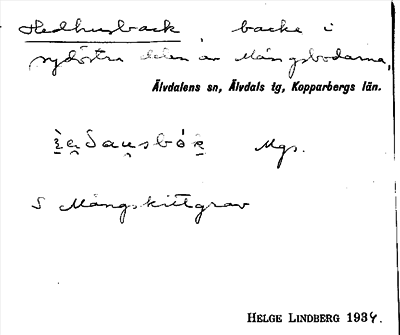 Hedhusback, backe i
sydöstra delen av Mångsbodarna,
Älvdalens sn, Älvdals tg, Kopparbergs län.
Mgs.
S Mångskittgrav
HELGE LINDBERG 1934.